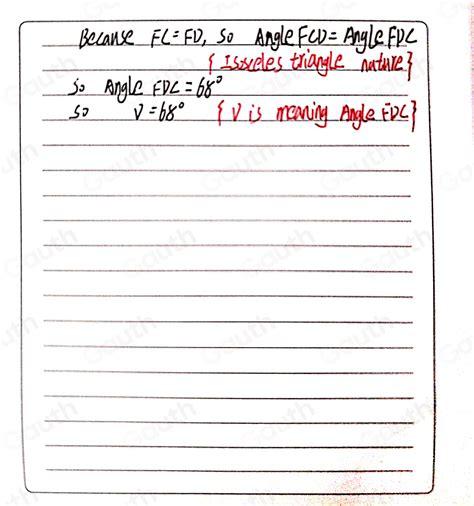 Because FC = FD, so Angle FCD = Angle FDC
{ Isosceles triangle nature }
So Angle FDC = 68°
So V = 68° { V is meaning Angle FDC }
Gauth